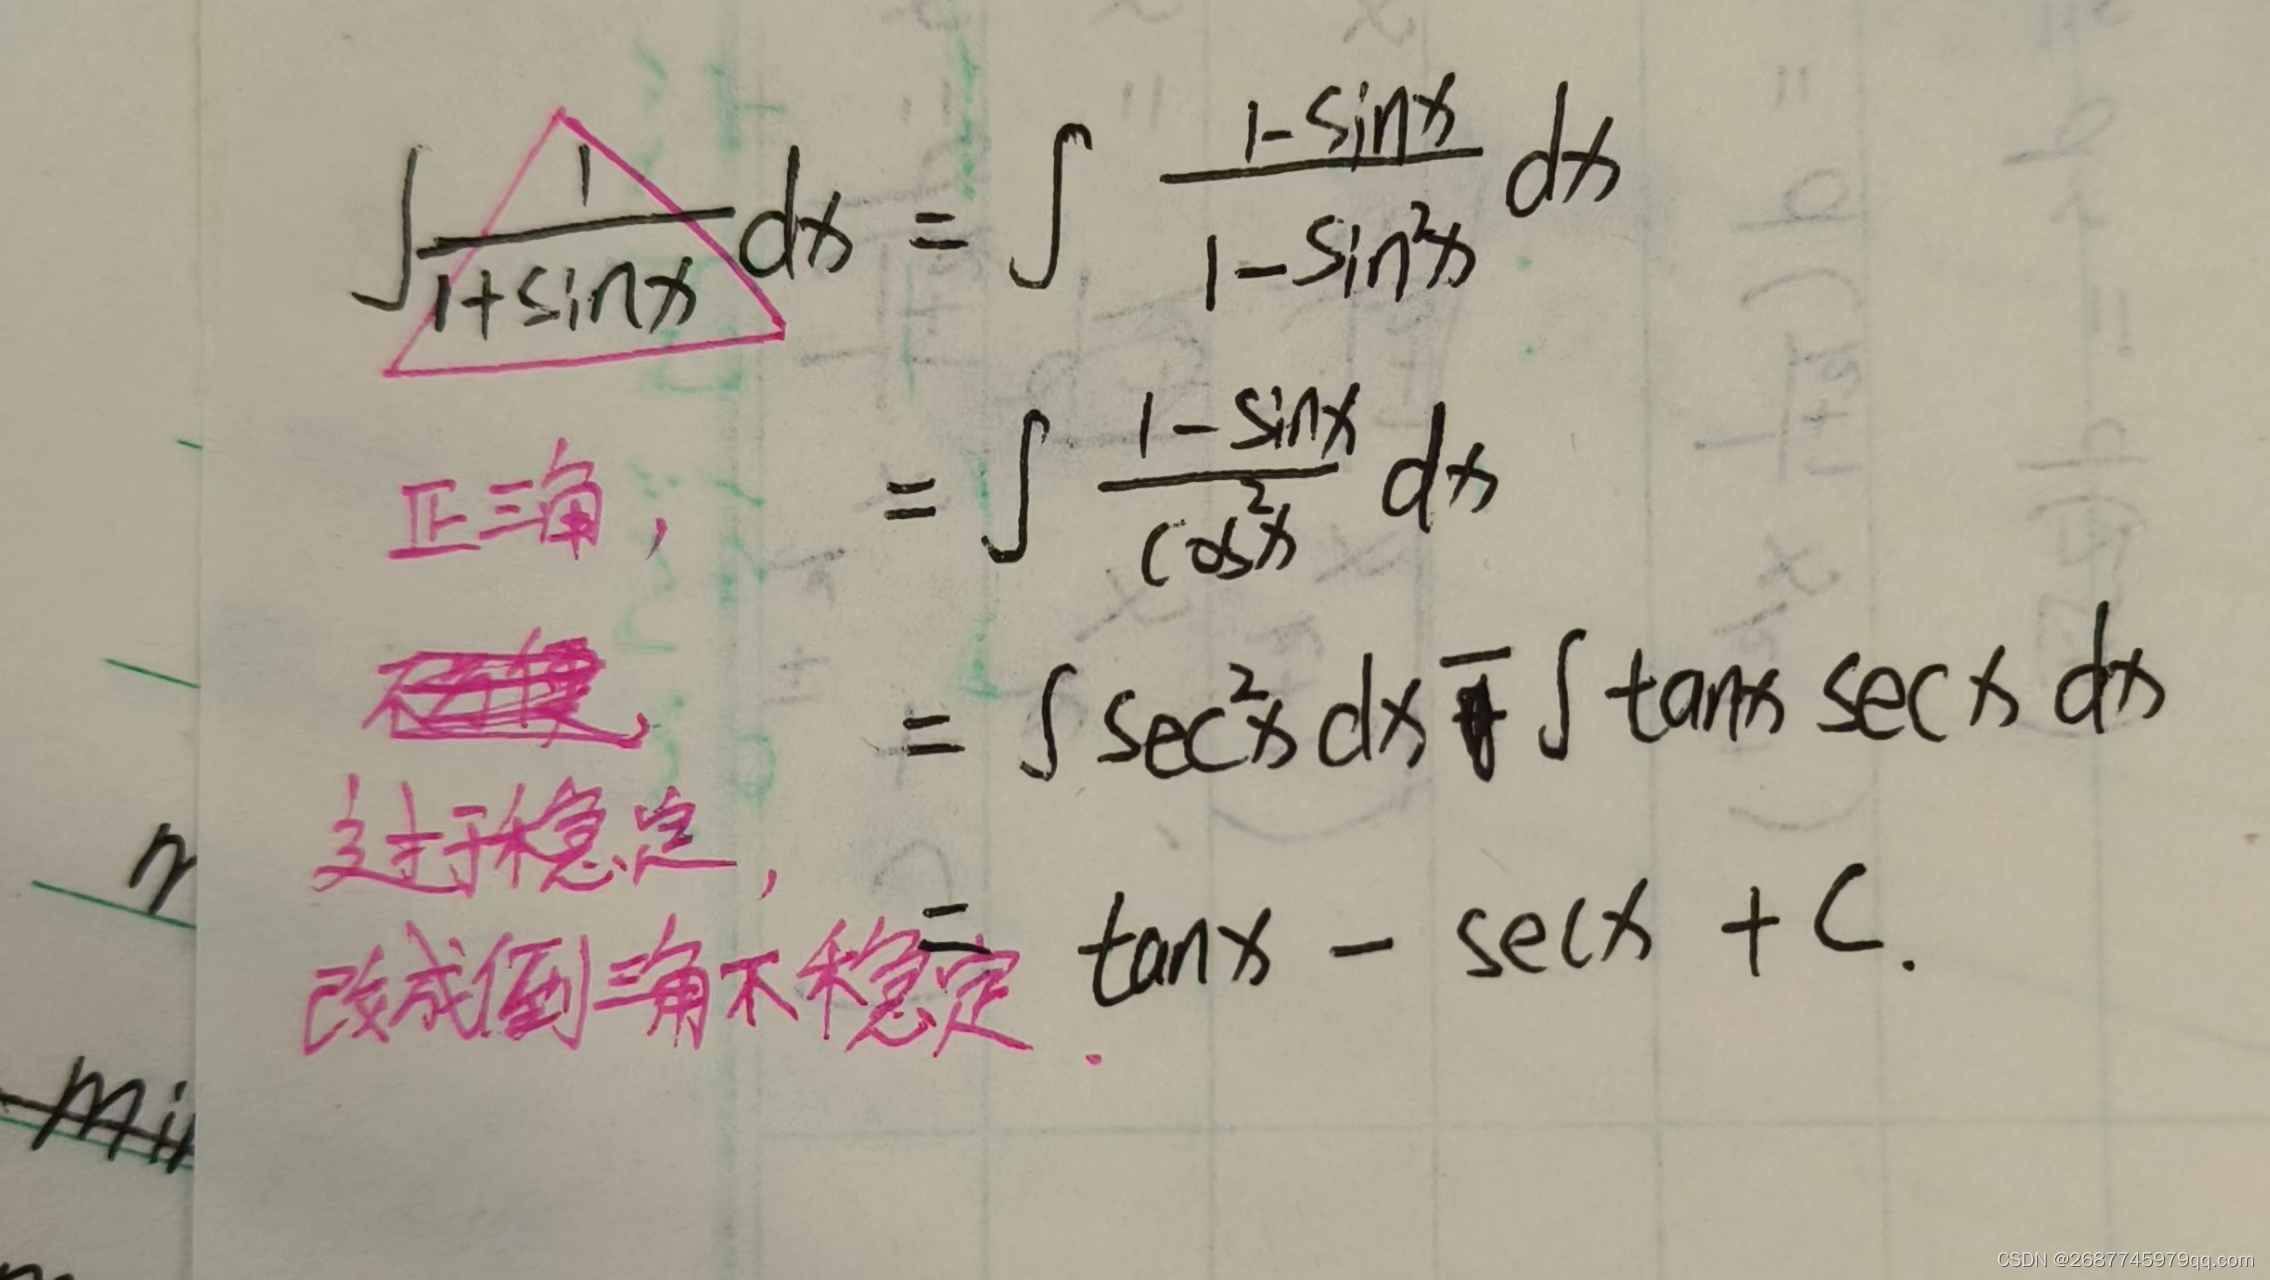 ∫ 1/(1+sinx) dx = ∫ (1-sinx)/(1-sin²x) dx
= ∫ (1-sinx)/(cos²x) dx
= ∫ sec²x dx - ∫ tanx secx dx
= tanx - secx + C.
正三角,
过于稳定,
改成倒三角不稳定.
n
min
CSDN @2687745979qq.com